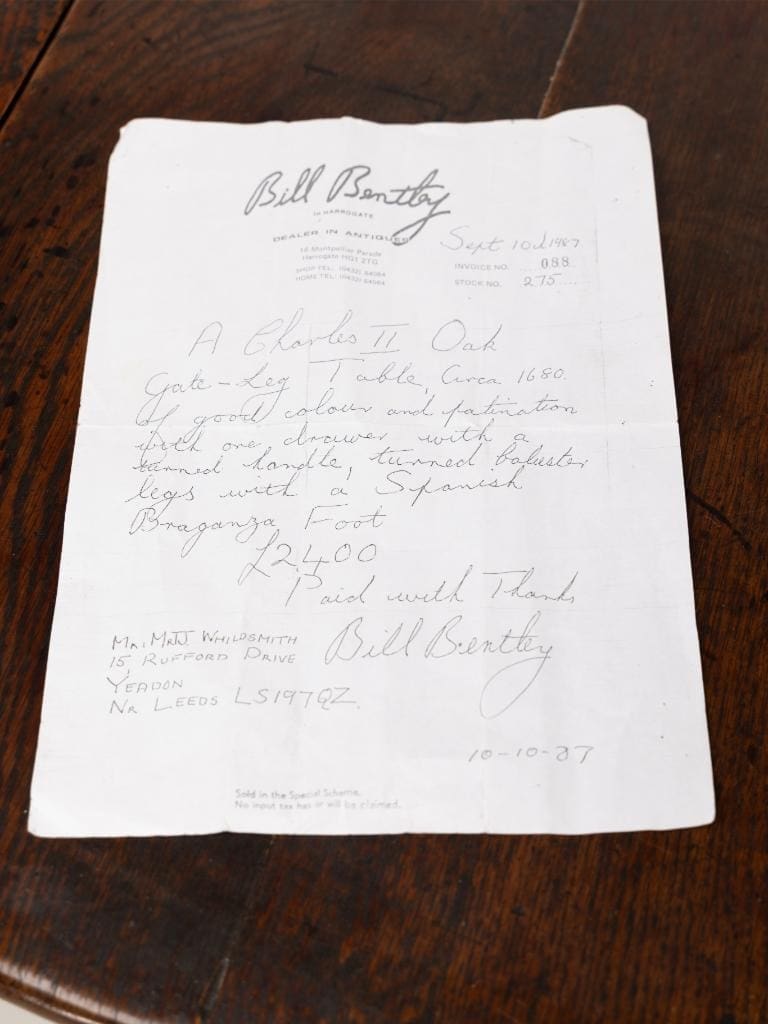 Bill Bentley
IN HARROGATE
DEALER IN ANTIQUES
16 Montpellier Parade
Harrogate HG1 2TG
SHOP TEL: (0432) 64084
HOME TEL: (0432) 64084
Sept 10th 1987
INVOICE NO. 088
STOCK NO. 275
A Charles II Oak
Gate-Leg Table, Circa 1680.
Of good colour and patination
with one drawer with a
turned handle, turned baluster
legs with a Spanish
Braganza Foot
£2400
Paid with Thanks
Bill Bentley
MR, MRS WHILDSMITH
15, RUFFORD DRIVE
YEADON
NR LEEDS LS19 7QZ
10-10-87
Sold in the Special Scheme.
No input tax has or will be claimed.